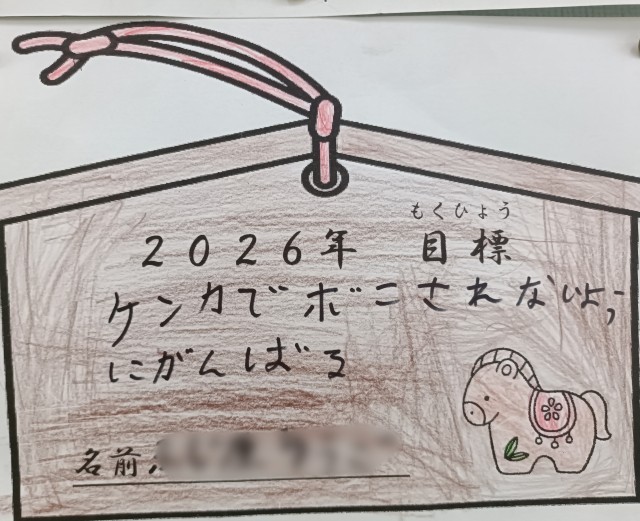 もくひょう
2026年 目標
ケンカでボコされないよう
にがんばる
名前